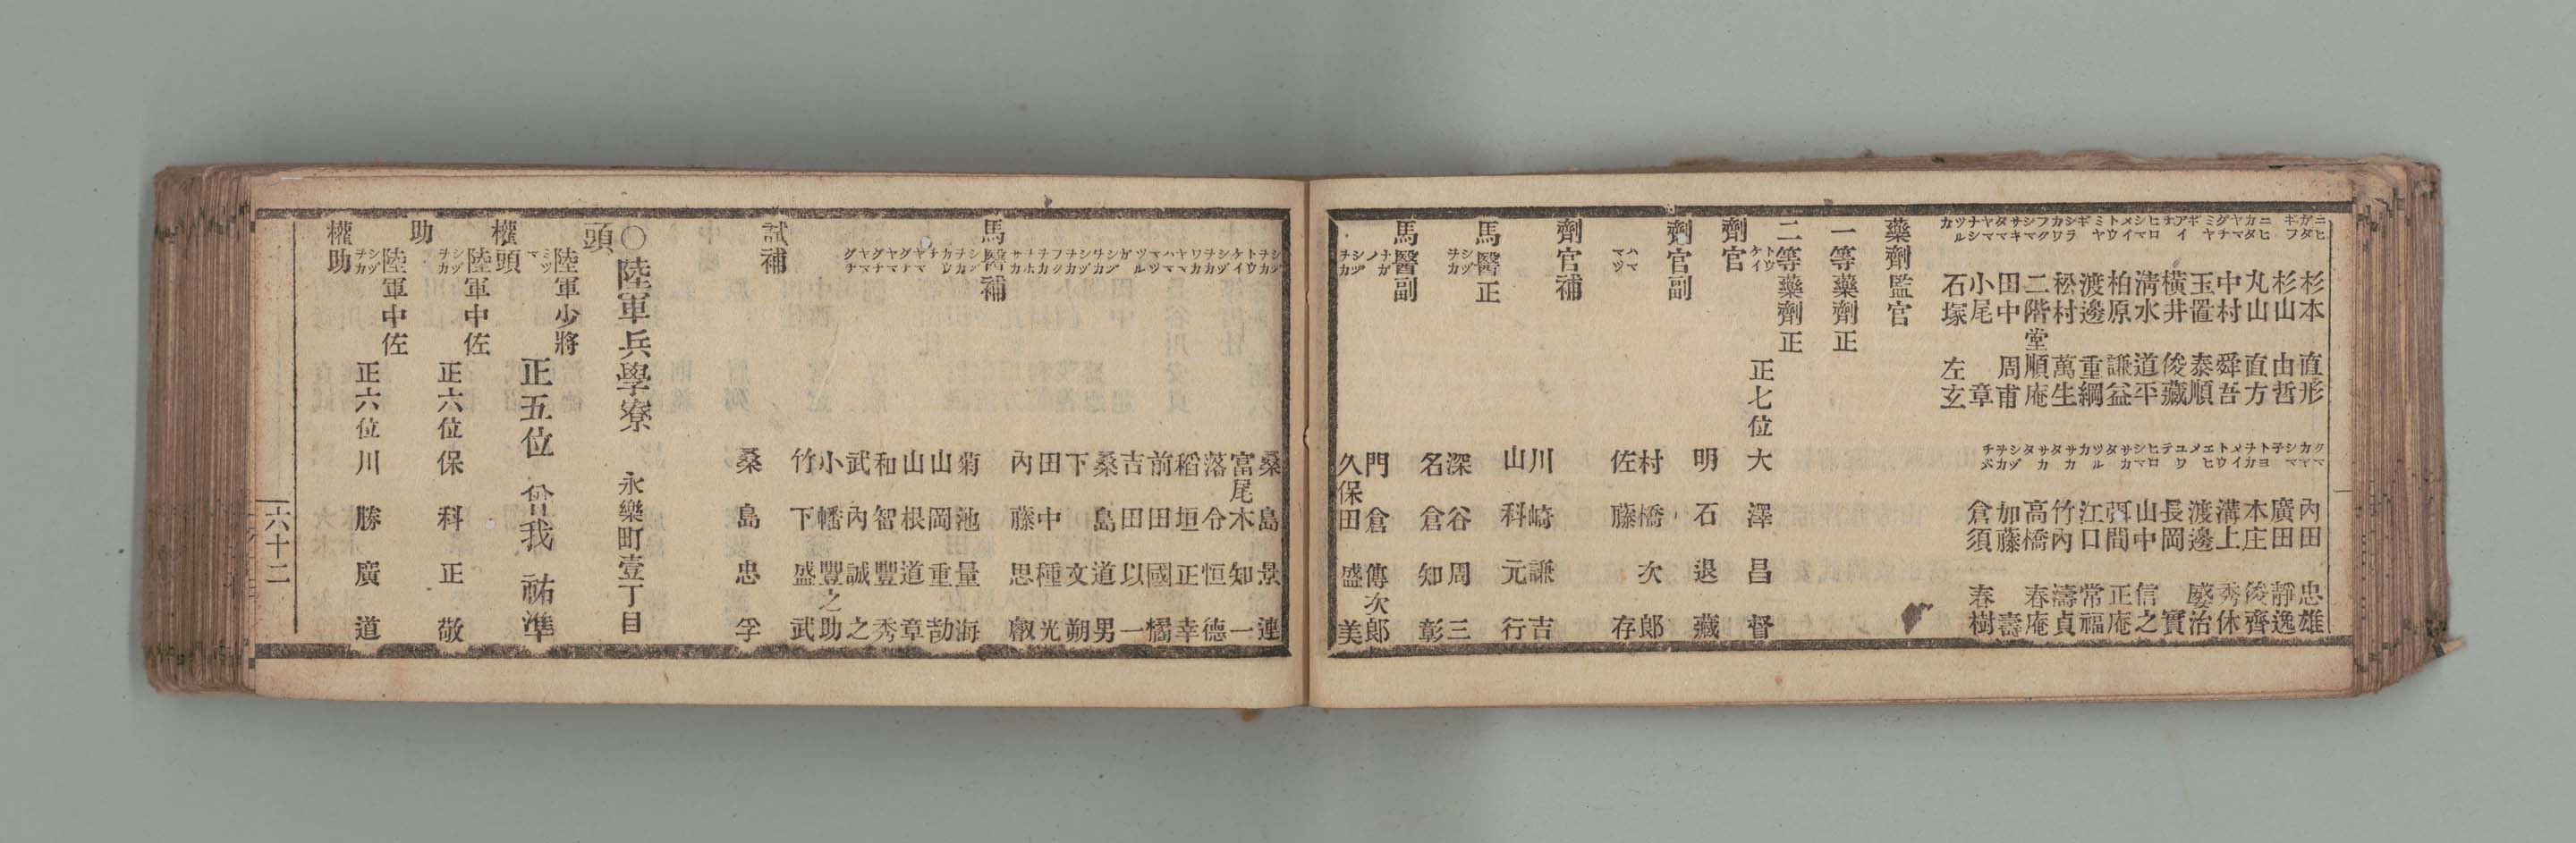 杉本直形
杉山由哲
丸山直方
中村舜吾
玉置泰順
横井俊藏
淸水道平
柏原謙益
渡邊重綱
松村萬生
二階堂順庵
田中周甫
小尾章
石塚左玄
內田忠雄
廣田靜逸
本庄俊齊
溝上秀休
渡邊嶪治
長岡實
山中信之
弭間正庵
江口常福
竹內濤貞
高橋春庵
加藤壽
倉須春樹
藥劑監官
一等藥劑正
二等藥劑正
トウケイ 正七位大澤昌督
劑官
明石退藏
劑官副
ハママツ 村橋次郞
佐藤存
劑官補
川崎謙吉
山科元行
馬醫正
シヅヲカ 深谷周三
名倉知彰
馬醫副
ナガノ 門倉傳次郞
シヅヲカ 久保田盛美
桑島景連
富尾木知一
落合恒德
稻垣正幸
前田國橘
吉田以一
桑島道男
下文朔
田中種光
內藤思叡
馬醫補
菊池量海
山岡重勍
山根道章
和智豐秀
武內誠之
小幡豐之助
竹下盛武
試補
桑島忠孚
○陸軍兵學寮 永樂町壹丁目
頭
陸軍少將
ミツマ 正五位曾我祐準
權頭
陸軍中佐
シヅヲカ 正六位保科正敬
助
陸軍中佐
シヅヲカ 正六位川勝廣道
權助
六十二